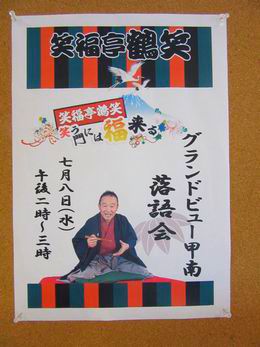 笑福亭鶴笑
笑福亭鶴笑
笑う門には福来る
グランドビュー甲南
落語会
七月八日(水)
午後二時~三時